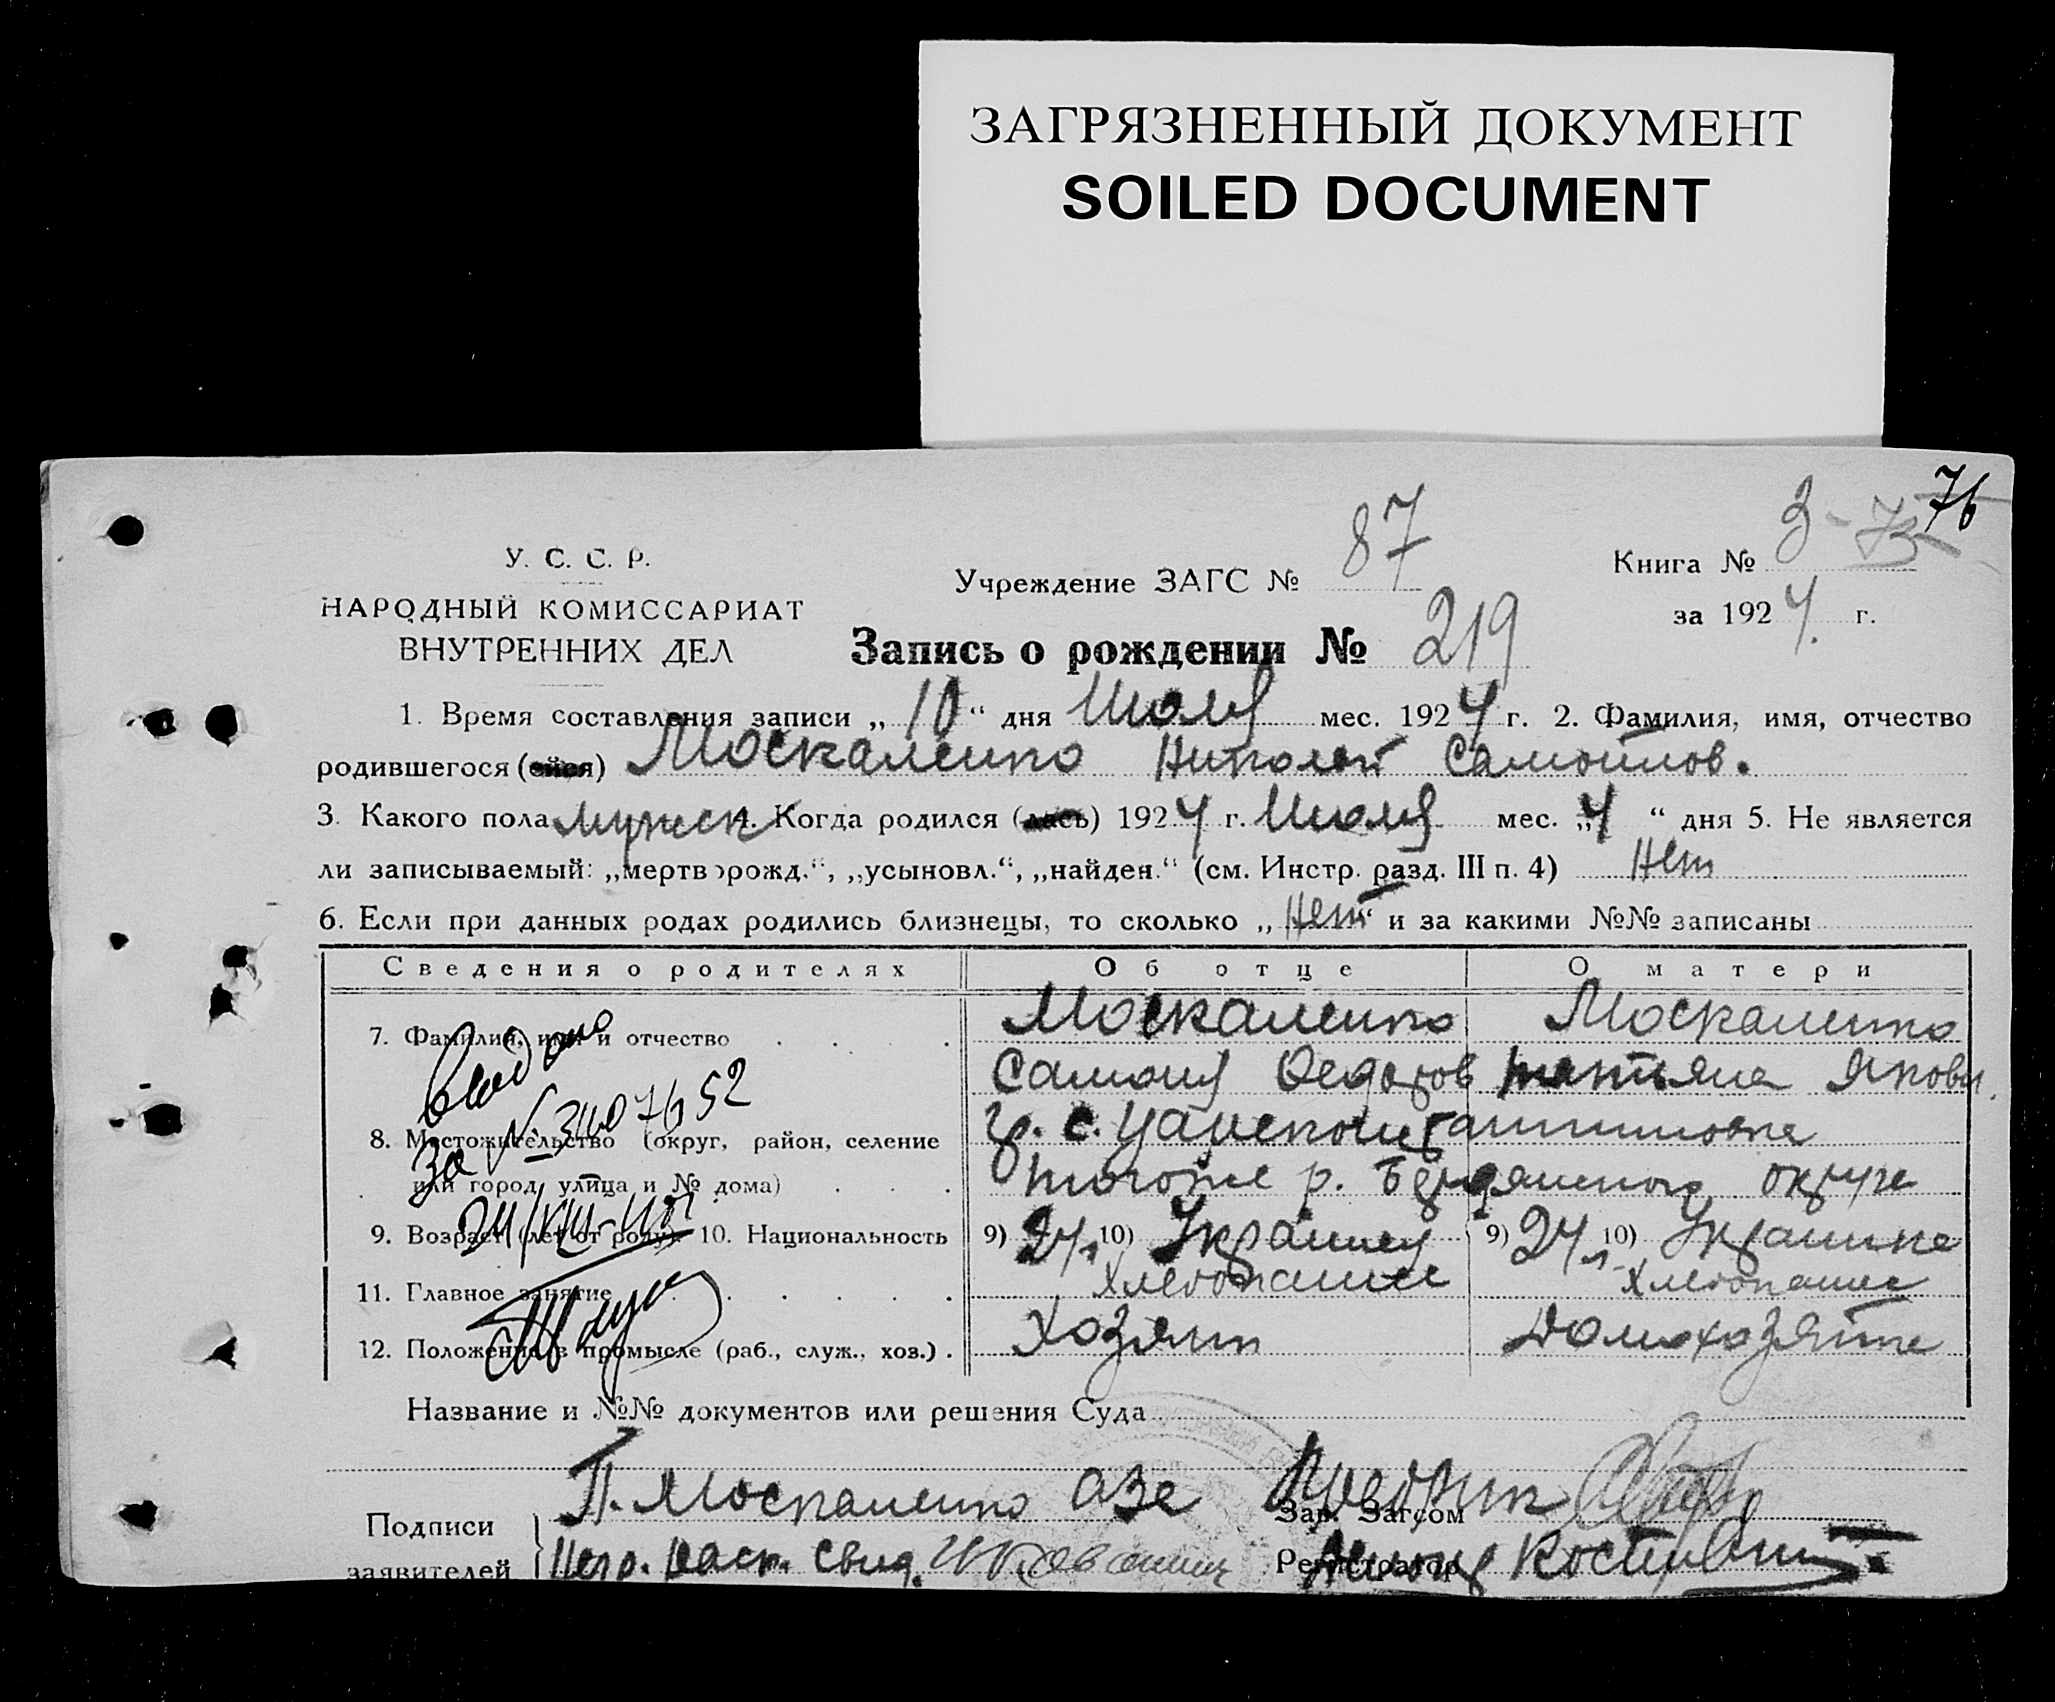 ЗАГРЯЗНЕННЫЙ ДОКУМЕНТ
SOILED DOCUMENT
76
У. С. С. Р.
НАРОДНЫЙ КОМИССАРИАТ
ВНУТРЕННИХ ДЕЛ
Учреждение ЗАГС № 87
Книга № 3
за 1924 г.
Запись о рождении № 219
1. Время составления записи „10“ дня Июля мес. 1924 г. 2. Фамилия, имя, отчество
родившегося (ейся) Москаленко Николай Самойлов.
3. Какого пола мужск 4. Когда родился (лась) 1924 г. Июля мес. „4“ дня 5. Не является
ли записываемый: „мертворожд.“, „усыновл.“, „найден.“ (см. Инстр. разд. III п. 4) Нет
6. Если при данных родах родились близнецы, то сколько „Нет“ и за какими №№ записаны
Сведения о родителях Об отце О матери
7. Фамилия, имя и отчество Москаленко Москаленко
Самоил Федоров Татьяна Яковл.
8. Местожительство (округ, район, селение гр. с.
или город, улица и № дома) того же р. Бердянского округа
9. Возраст (лет от роду). 10. Национальность 9) 24 л 10) Украинец 9) 24 л 10) Украинка
11. Главное занятие Хлебопашес Хлебопашес
12. Положение в промысле (раб., служ., хоз.) Хозяин Домохозяйка
Выдано
За №
Название и №№ документов или решения Суда
Подписи
заявителей
П. Москаленко
Зав. Загсом
Регистратор